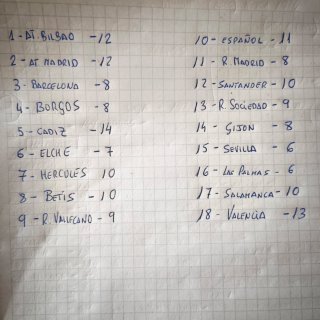 1 - AT. BILBAO - 12
2 - AT MADRID - 12
3 - BARCELONA - 8
4 - BURGOS - 8
5 - CADIZ - 14
6 - ELCHE - 7
7 - HERCULES 10
8 - BETIS - 10
9 - R. VALLECANO - 9
10 - ESPAÑOL - 11
11 - R MADRID - 8
12 - SANTANDER - 10
13 - R. SOCIEDAD - 9
14 - GIJON - 8
15 - SEVILLA - 6
16 - LAS PALMAS - 6
17 - SALAMANCA - 10
18 - VALENCIA - 13